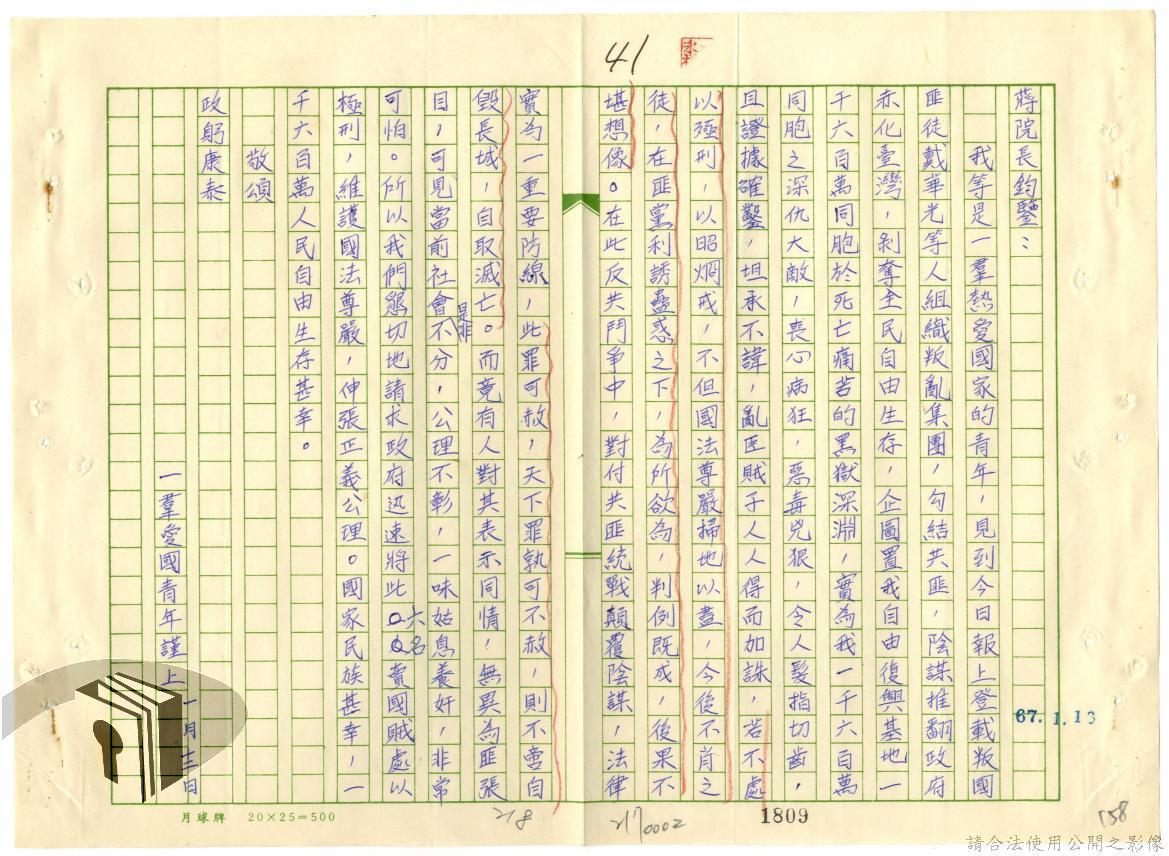 41
蔣院長鈞鑒：
我等是一羣熱愛國家的青年，見到今日報上登載叛國
匪徒戴華光等人組織叛亂集團，勾結共匪，陰謀推翻政府
赤化臺灣，剝奪全民自由生存，企圖置我自由復興基地一
千六百萬同胞於死亡痛苦的黑獄深淵，實為我一千六百萬
同胞之深仇大敵，喪心病狂，惡毒兇狠，令人髮指切齒，
且證據確鑿，坦承不諱，亂匪賊子人人得而加誅，若不處
以極刑，以昭烱戒，不但國法尊嚴掃地以盡，今後不肖之
徒，在匪黨利誘蠱惑之下，為所欲為，判例既成，後果不
堪想像。在此反共鬥爭中，對付共匪統戰顛覆陰謀，法律
實為一重要防線，此罪可赦，天下罪孰可不赦，則不啻自
毀長城，自取滅亡。而竟有人對其表示同情，無異為匪張
目，可見當前社會是非不分，公理不彰，一味姑息養奸，非常
可怕。所以我們懇切地請求政府迅速將此六名賣國賊處以
極刑，維護國法尊嚴，伸張正義公理。國家民族甚幸，一
千六百萬人民自由生存甚幸。
敬頌
政躬康泰
一羣愛國青年謹上 一月十三日
67.1.13
月球牌 20×25=500
218
217
0002
1809
158
請合法使用公開之影像